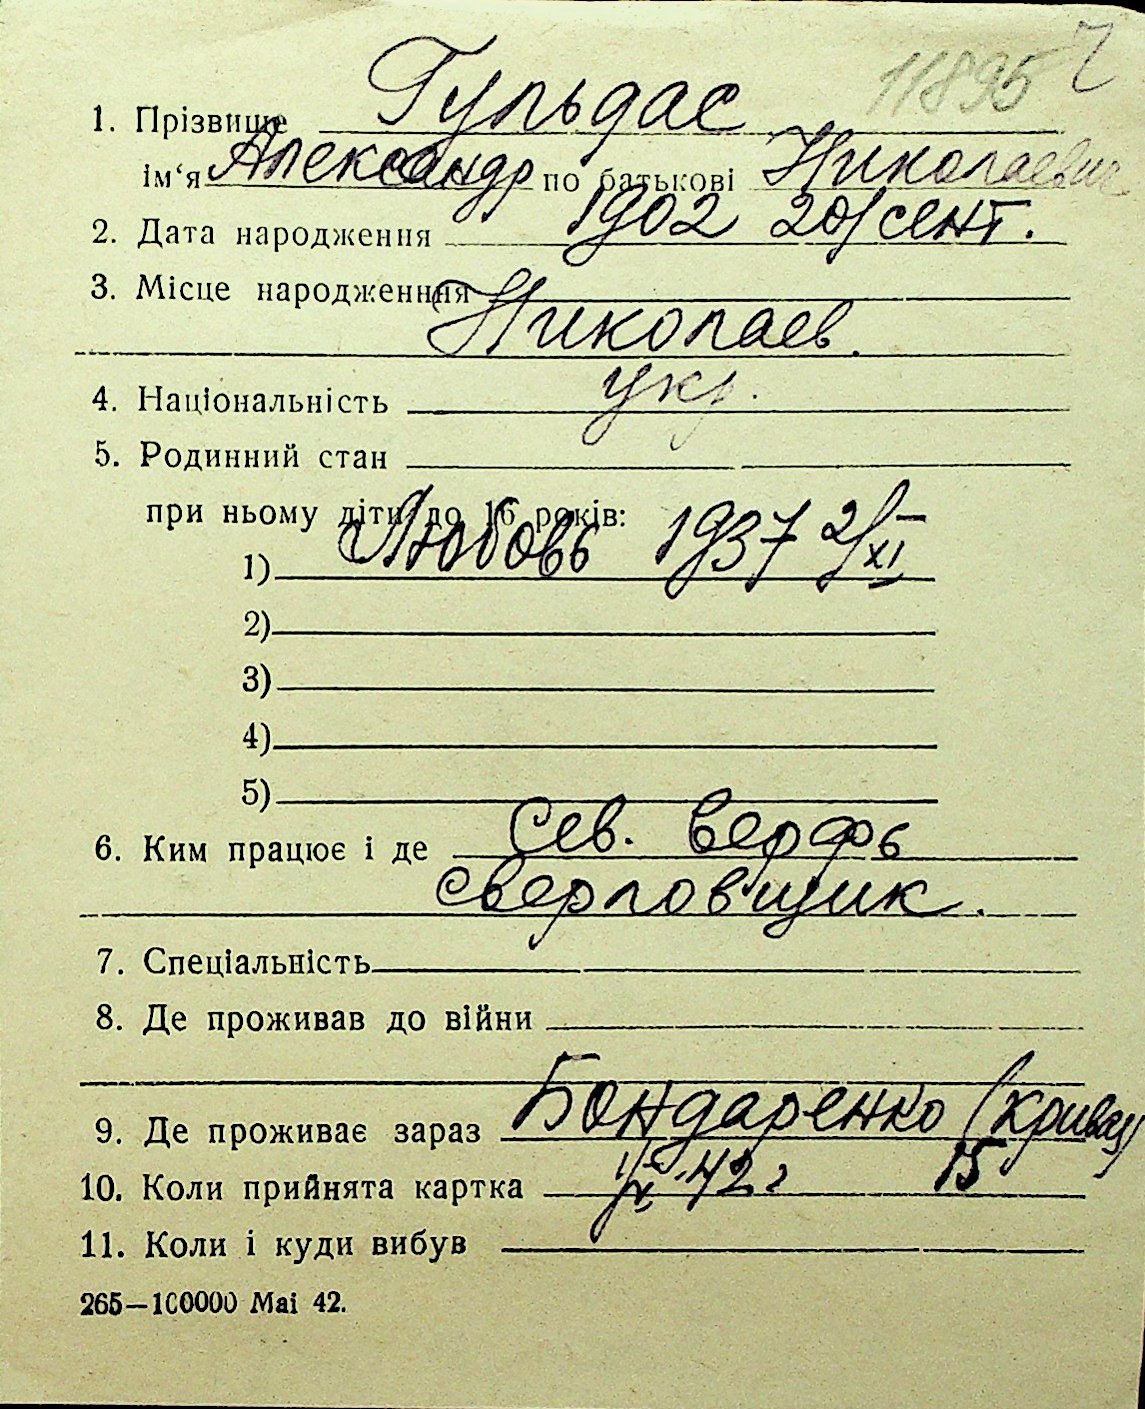 11895 Ч
1. Прізвище Гульдас
ім‘я Александр по батькові Николаевич
2. Дата народження 1902 20/сент.
3. Місце народженння
Николаев.
4. Національність укр.
5. Родинний стан
при ньому діти до 16 років:
1) Любовь 1937 2/XI
2)
3)
4)
5)
6. Ким працює і де Сев. верфь
сверловщик.
7. Спеціальність
8. Де проживав до війни
9. Де проживає зараз Бондаренко (Кривая)
15
10. Коли прийнята картка 42 г
11. Коли і куди вибув
265—100000 Mai 42.